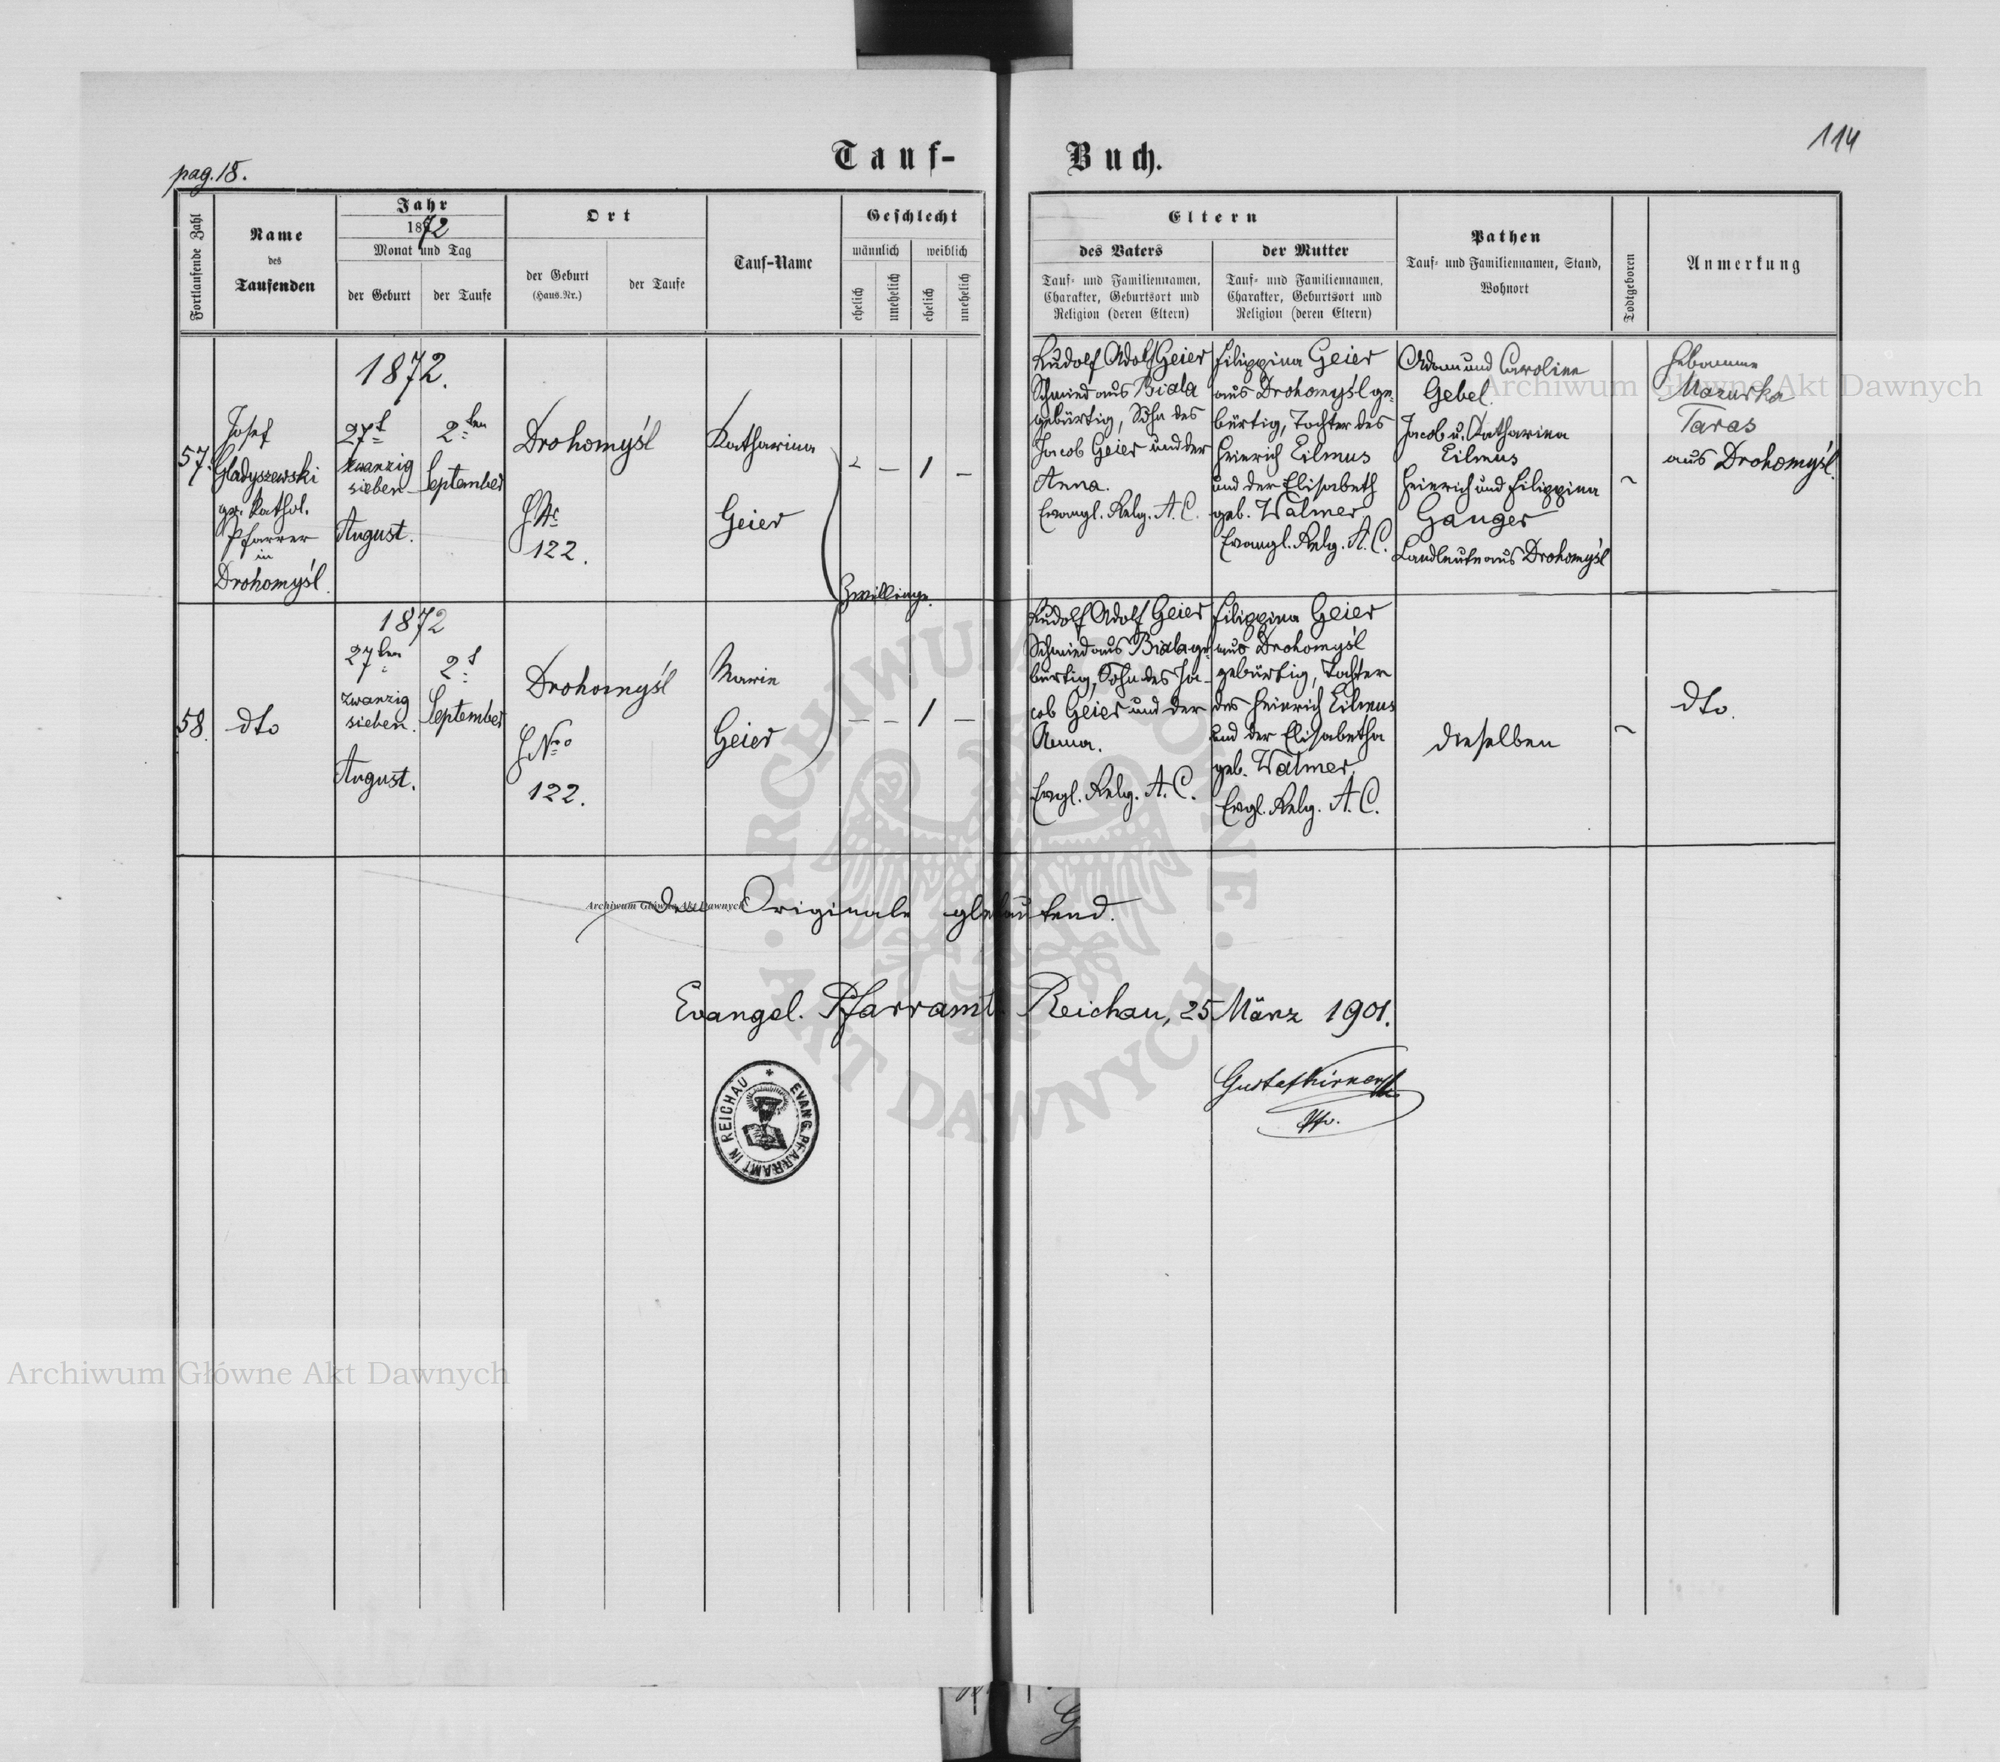 114
pag. 18.
Tauf-Buch.
Fortlaufende Zahl
Name
des
Taufenden
Jahr
1872
Monat und Tag
der Geburt
der Taufe
Ort
der Geburt
(Haus-Nr.)
der Taufe
Tauf-Name
Geschlecht
männlich
weiblich
ehelich
unehelich
ehelich
unehelich
Eltern
des Vaters
Tauf- und Familiennamen,
Charakter, Geburtsort und
Religion (deren Eltern)
der Mutter
Tauf- und Familiennamen,
Charakter, Geburtsort und
Religion (deren Eltern)
Pathen
Tauf- und Familiennamen, Stand,
Wohnort
Todtgeboren
Anmerkung
57.
Josef
Gladyszewski
gr. kathol.
Pfarrer
in
Drohomyśl.
1872.
27t
zwanzig
sieben
August.
2ten
September
Drohomyśl
HNr
122.
Katharina
Geier
– – 1 –
Zwillinge.
Rudolf Adolf Geier
Schmied aus Biala
gebürtig, Sohn des
Jacob Geier und der
Anna.
Evangl. Relg. A. C.
Filippina Geier
aus Drohomyśl ge-
bürtig, Tochter des
Heinrich Eilmus
und der Elisabeth
geb. Walmer
Evangl. Relg. A. C.
Adam und Caroline
Gebel.
Jacob u. Katharina
Eilmus
Heinrich und Filippina
Ganger
Landleute aus Drohomyśl
~
Hebamme
Maruska
Taras
aus Drohomyśl.
58.
dto
1872
27ten
zwanzig
sieben.
August.
2t
September
Drohomyśl
HNro
122.
Marie
Geier
– – 1 –
Rudolf Adolf Geier
Schmied aus Biala ge-
bürtig, Sohn des Ja-
cob Geier und der
Anna.
Evgl. Relg. A. C.
Filippina Geier
aus Drohomyśl
gebürtig, Tochter
des Heinrich Eilmus
und der Elisabetha
geb. Walmer.
Evgl. Relg. A. C.
dieselben
~
dto.
dem Originale gleichlautend.
Evangel. Pfarramt Reichau, 25 März 1901.
Gustaf
Pfr.
EVANG. PFARRAMT IN REICHAU *
Archiwum Główne Akt Dawnych
Archiwum Główne Akt Dawnych
Archiwum Główne Akt Dawnych
ARCHIWUM GŁÓWNE · AKT DAWNYCH ·